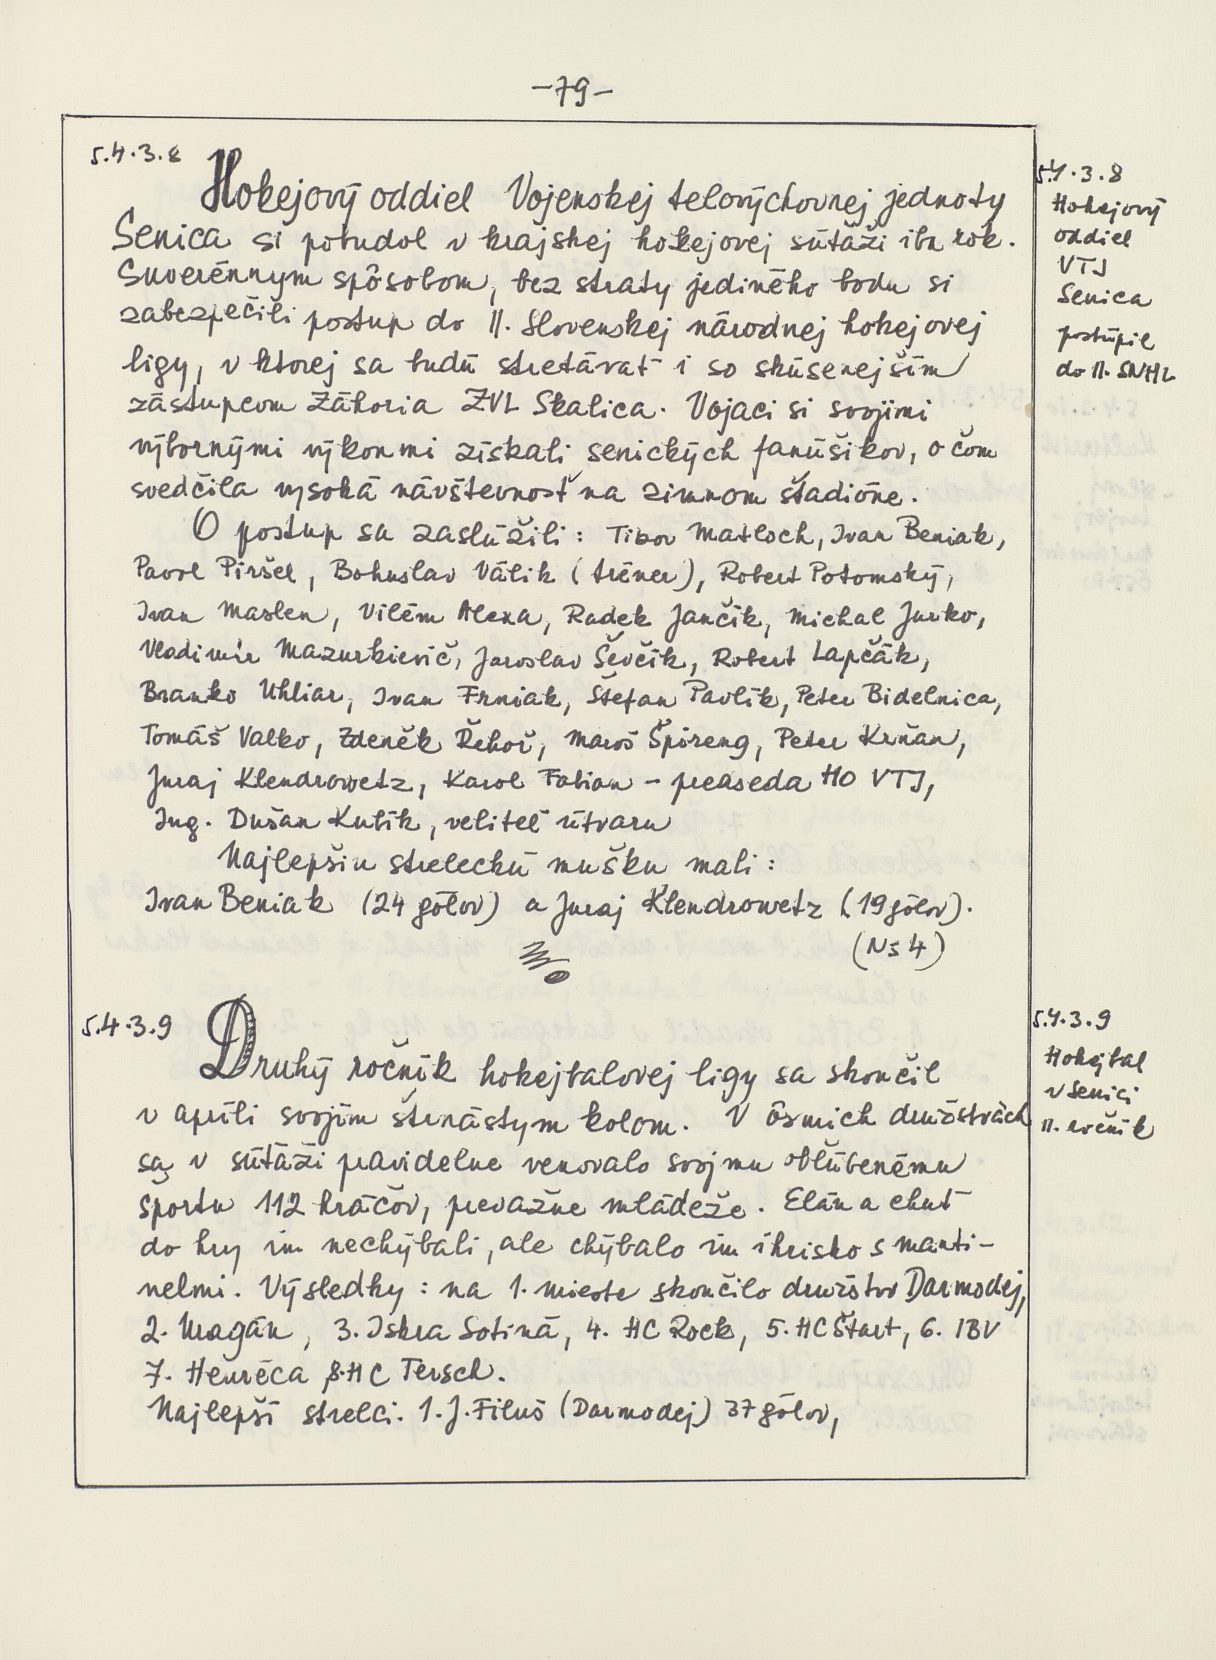 -79-
5.4.3.8
Hokejový oddiel Vojenskej telovýchovnej jednoty
Senica si pobudol v krajskej hokejovej súťaži iba rok.
Suverénnym spôsobom, bez straty jediného bodu si
zabezpečili postup do II. Slovenskej národnej hokejovej
ligy, v ktorej sa budú stretávať i so skúsenejším
zástupcom Záhoria ZVL Skalica. Vojaci si svojimi
výbornými výkonmi získali senických fanúšikov, o čom
svedčila vysoká návštevnosť na zimnom štadióne.
O postup sa zaslúžili: Tibor Matloch, Ivan Beniak,
Pavol Piršel, Bohuslav Válik (tréner), Robert Potomský,
Ivan Maslen, Vilém Alexa, Radek Jančík, Michal Jurko,
Vladimír Mazurkievič, Jaroslav Ševčík, Robert Lapčák,
Branko Uhliar, Ivan Frniak, Štefan Pavlík, Peter Bidelnica,
Tomáš Valko, Zdeněk Řehoř, Maroš Špireng, Peter Krňan,
Juraj Klendrowetz, Karol Fabian - predseda HO VTJ,
Ing. Dušan Kubík, veliteľ útvaru
Najlepšiu streleckú mušku mali:
Ivan Beniak (24 gólov) a Juraj Klendrowetz (19 gólov).
(NS 4)
5.4.3.8
Hokejový
oddiel
VTJ
Senica
postúpil
do II. SNHL
5.4.3.9
Druhý ročník hokejbalovej ligy sa skončil
v apríli svojím štrnástym kolom. V ôsmich družstvách
sa v súťaži pravidelne venovalo svojmu obľúbenému
športu 112 hráčov, prevažne mládeže. Elán a chuť
do hry im nechýbali, ale chýbalo im ihrisko s manti-
nelmi. Výsledky: na 1. mieste skončilo družstvo Darmodej,
2. Uragán, 3. Iskra Sotiná, 4. HC Rock, 5. HC Štart, 6. IBV
7. Heuréca 8. HC Tersch.
Najlepší strelci. 1. J. Filuš (Darmodej) 37 gólov,
5.4.3.9
Hokejbal
v Senici
II. ročník